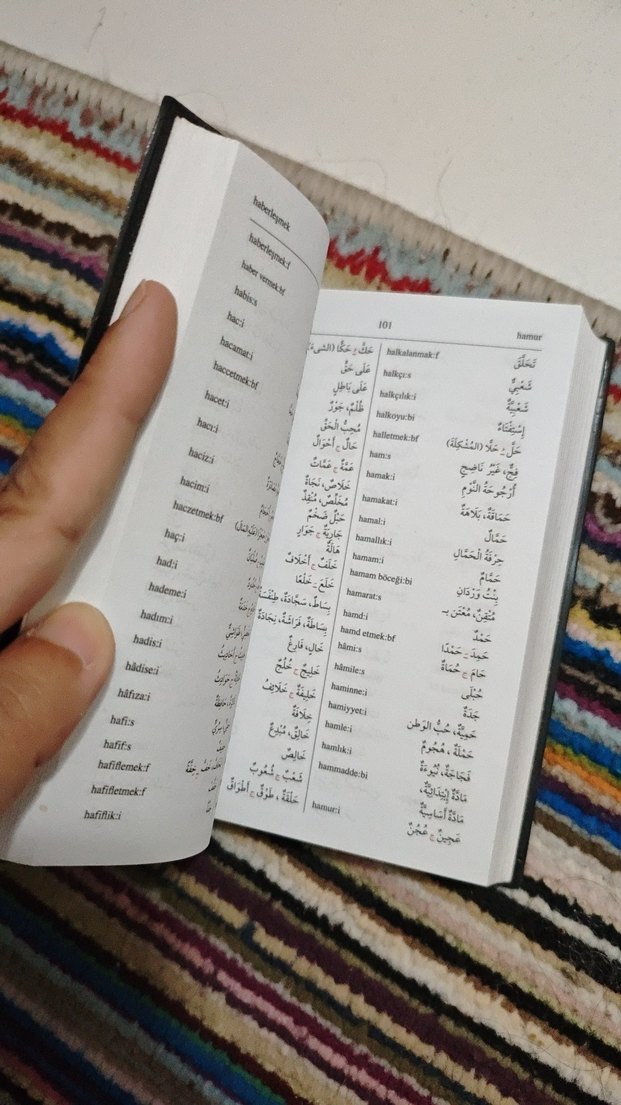 haberleşmek
haberleşmek:f
haber vermek:bf
habis:s
hac:i
hacamat:i
haccetmek:bf
hacet:i
hacı:i
haciz:i
hacim:i
haczetmek:bf
haç:i
had:i
hademe:i
hadım:i
hadis:i
hâdise:i
hâfıza:i
hafi:s
hafif:s
hafiflemek:f
hafifletmek:f
hafiflik:i
101
hamur
حَكَّ ـُ حَكًّا (الشيء
عَلَى حَقٍّ
عَلَى بَاطِلٍ
ظُلْمٌ، جَوْرٌ
مُحِبُّ الْحَقِّ
حَالٌ ج أَحْوَالٌ
عَمَّةٌ ج عَمَّاتٌ
خَلَاصٌ، نَجَاةٌ
مُخَلِّصٌ، مُنْقِذٌ
حَبْلٌ ضَخْمٌ
جَارِيَةٌ ج جَوَارٍ
هَالَةٌ
خَلَفٌ ج أَخْلَافٌ
خَلَعَ ـَ خَلْعًا
بِسَاطٌ، سَجَّادَةٌ، طِنْفَسَةٌ
بِسَاطَةٌ، فَرَاشَةٌ، نِجَادَةٌ
خَالٍ، فَارِغٌ
خَلِيجٌ ج خُلُجٌ
خَلِيفَةٌ ج خَلَايِفُ
خِلَافَةٌ
خَالِقٌ، مُبْدِعٌ
خَالِصٌ
شَعْبٌ ج شُعُوبٌ
حَلْقَةٌ ، طَوْقٌ ج أَطْوَاقٌ
halkalanmak:f تَحَلَّقَ
halkçı:s شَعْبِيٌّ
halkçılık:i شَعْبِيَّةٌ
halkoyu:bi إِسْتِفْتَاءٌ
halletmek:bf حَلَّ ـُ حَلًّا (المُشْكِلَةَ)
ham:s فِجٌّ، غَيْرُ نَاضِجٍ
hamak:i أُرْجُوحَةُ النَّوْمِ
hamakat:i حَمَاقَةٌ، بَلَاهَةٌ
hamal:i حَمَّالٌ
hamallık:i حِرْفَةُ الْحَمَّالِ
hamam:i حَمَّامٌ
hamam böceği:bi بِنْتُ وَرْدَانِ
hamarat:s مُتْقِنٌ، مُعْتَنٍ بِـ
hamd:i حَمْدٌ
hamd etmek:bf حَمِدَ ـَ حَمْدًا
hâmi:s حَامٍ ج حُمَاةٌ
hâmile:s حُبْلَى
haminne:i جَدَّةٌ
hamiyyet:i حَمِيَّةٌ، حُبُّ الوَطَنِ
hamle:i حَمْلَةٌ، هُجُومٌ
hamlık:i فَجَاجَةٌ، نُيُوءَةٌ
hammadde:bi مَادَّةٌ اِبْتِدَائِيَّةٌ،
مَادَّةٌ أَسَاسِيَّةٌ
hamur:i عَجِينٌ ج عُجُنٌ